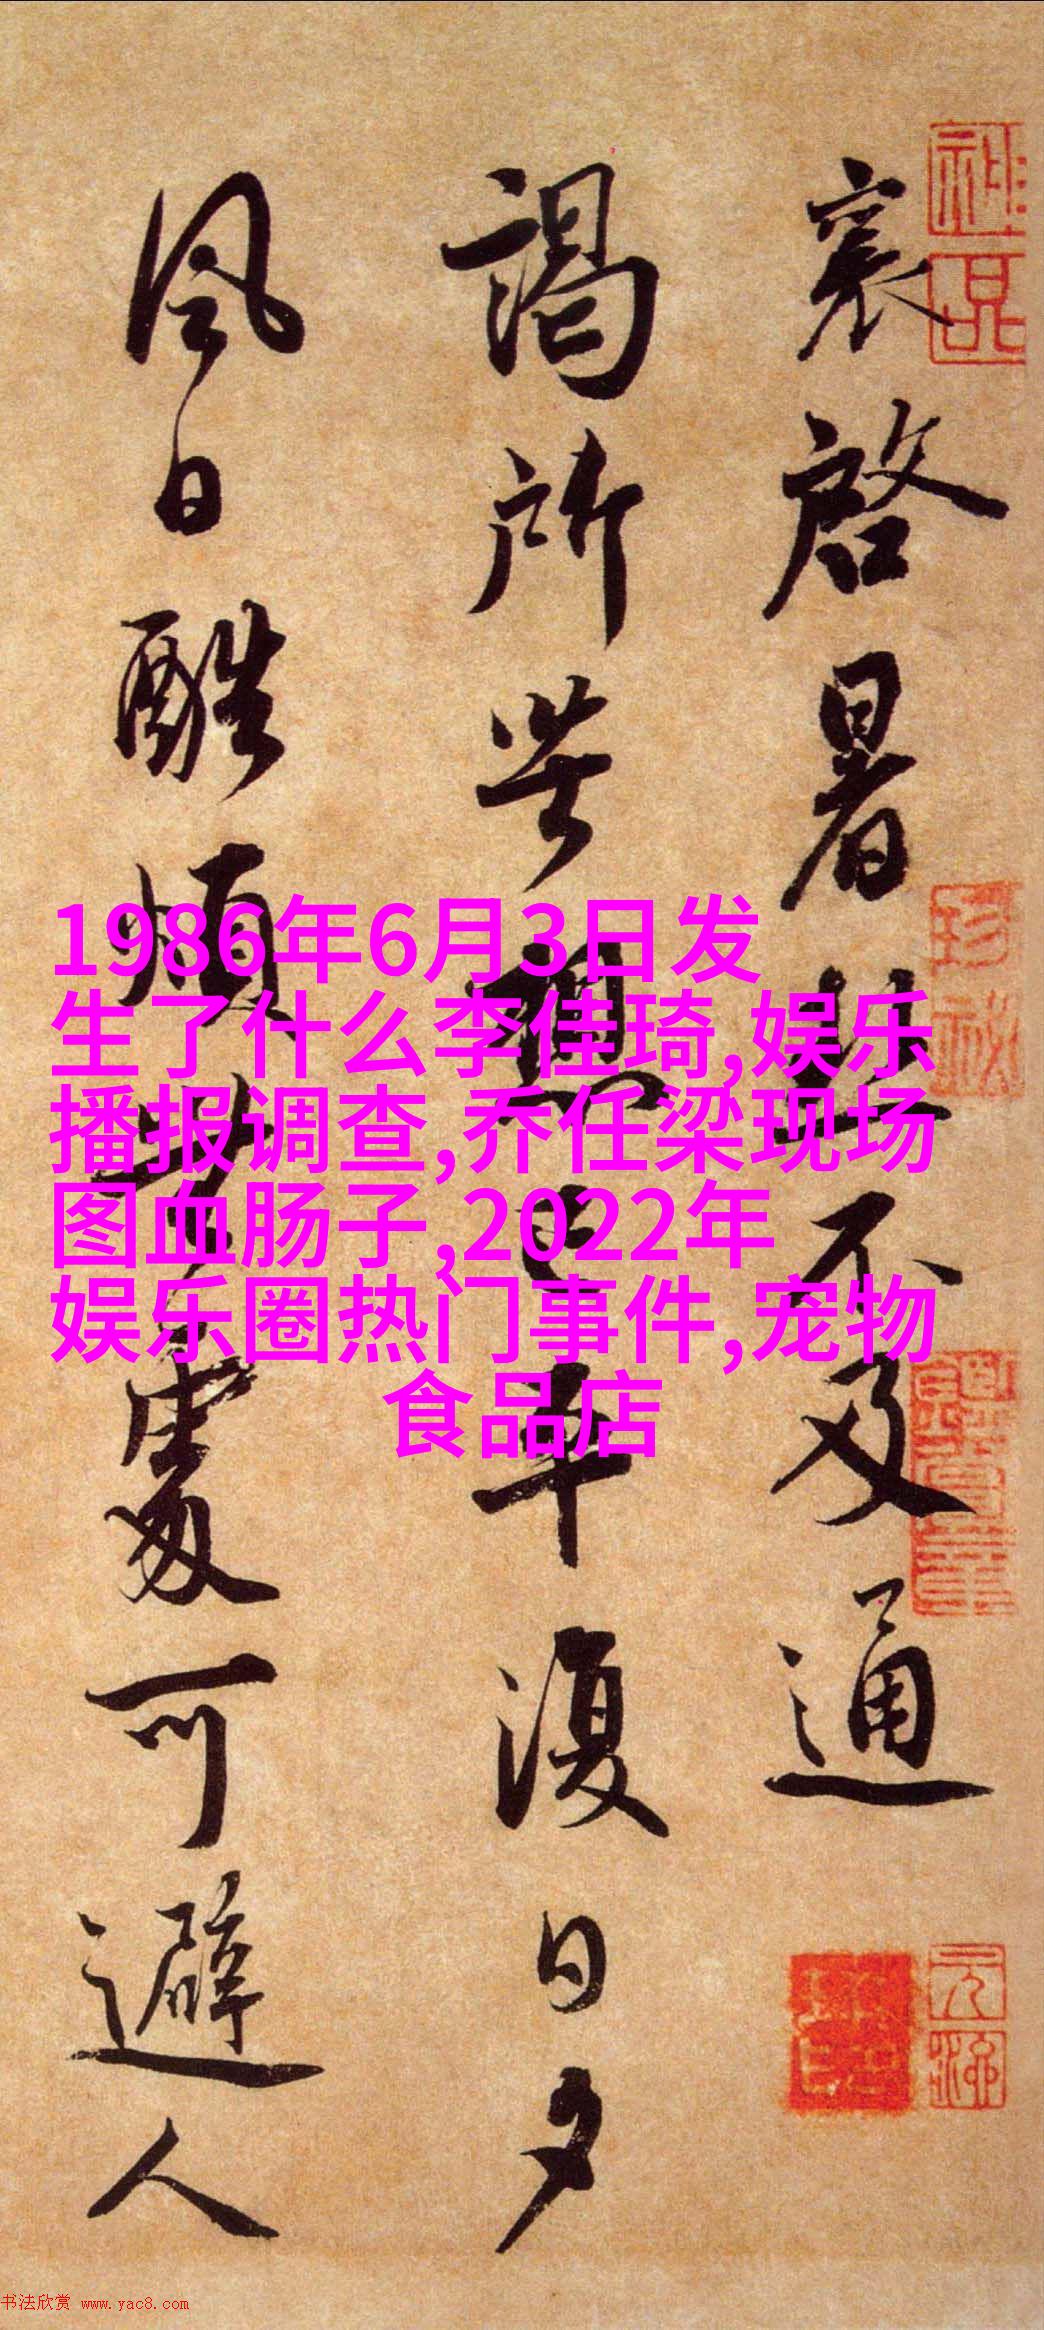 襄啓暑熱不及通
謁所苦想已平復日夕
風日酷煩無處可避人
1986年6月3日发
生了什么李佳琦,娱乐
播报调查,乔任梁现场
图血肠子,2022年
娱乐圈热门事件,宠物
食品店
书法欣赏 www.yac8.com